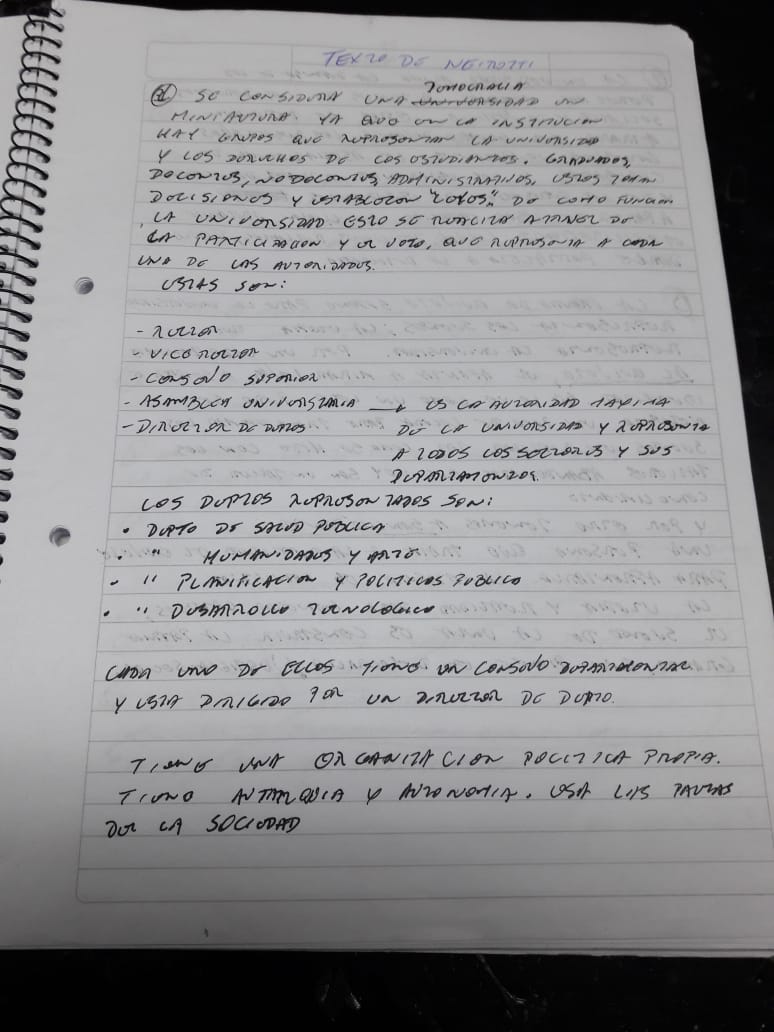 TEXTO DE NEIROTTI
DEMOCRACIA
① SE CONSIDERA UNA UNIVERSIDAD EN
MINIATURA. YA QUE EN LA INSTITUCION
HAY GRUPOS QUE REPRESENTAN LA UNIVERSIDAD
Y LOS DERECHOS DE LOS ESTUDIANTES. GRADUADOS,
DOCENTES, NO DOCENTES, ADMINISTRATIVOS, ESTOS TOMAN
DECISIONES Y ESTABLECEN "LEYES" DE COMO FUNCION
LA UNIVERSIDAD ESTO SE REALIZA A TRAVEZ DE
LA PARTICIPACION Y EL VOTO, QUE REPRESENTA A CADA
UNA DE LAS AUTORIDADES.
ESTAS SON:
- RECTOR
- VICE RECTOR
- CONSEJO SUPERIOR
- ASAMBLEA UNIVERSITARIA → ES LA AUTORIDAD MAXIMA
- DIRECTOR DE DEPTOS DE LA UNIVERSIDAD Y REPRESENTA
A TODOS LOS SECTORES Y SUS
DEPARTAMENTOS.
LOS DEPTOS REPRESENTADOS SON:
• DEPTO DE SALUD PUBLICA
• " HUMANIDADES Y ARTE
• " PLANIFICACION Y POLITICAS PUBLICO
• " DESARROLLO TECNOLOGICO
CADA UNO DE ELLOS TIENE UN CONSEJO DEPARTAMENTAL
Y ESTA DIRIGIDO POR UN DIRECTOR DE DEPTO.
TIENE UNA ORGANIZACION POLITICA PROPIA.
TIENE AUTARQUIA Y AUTONOMIA. USA LAS PAUTAS
DE LA SOCIEDAD